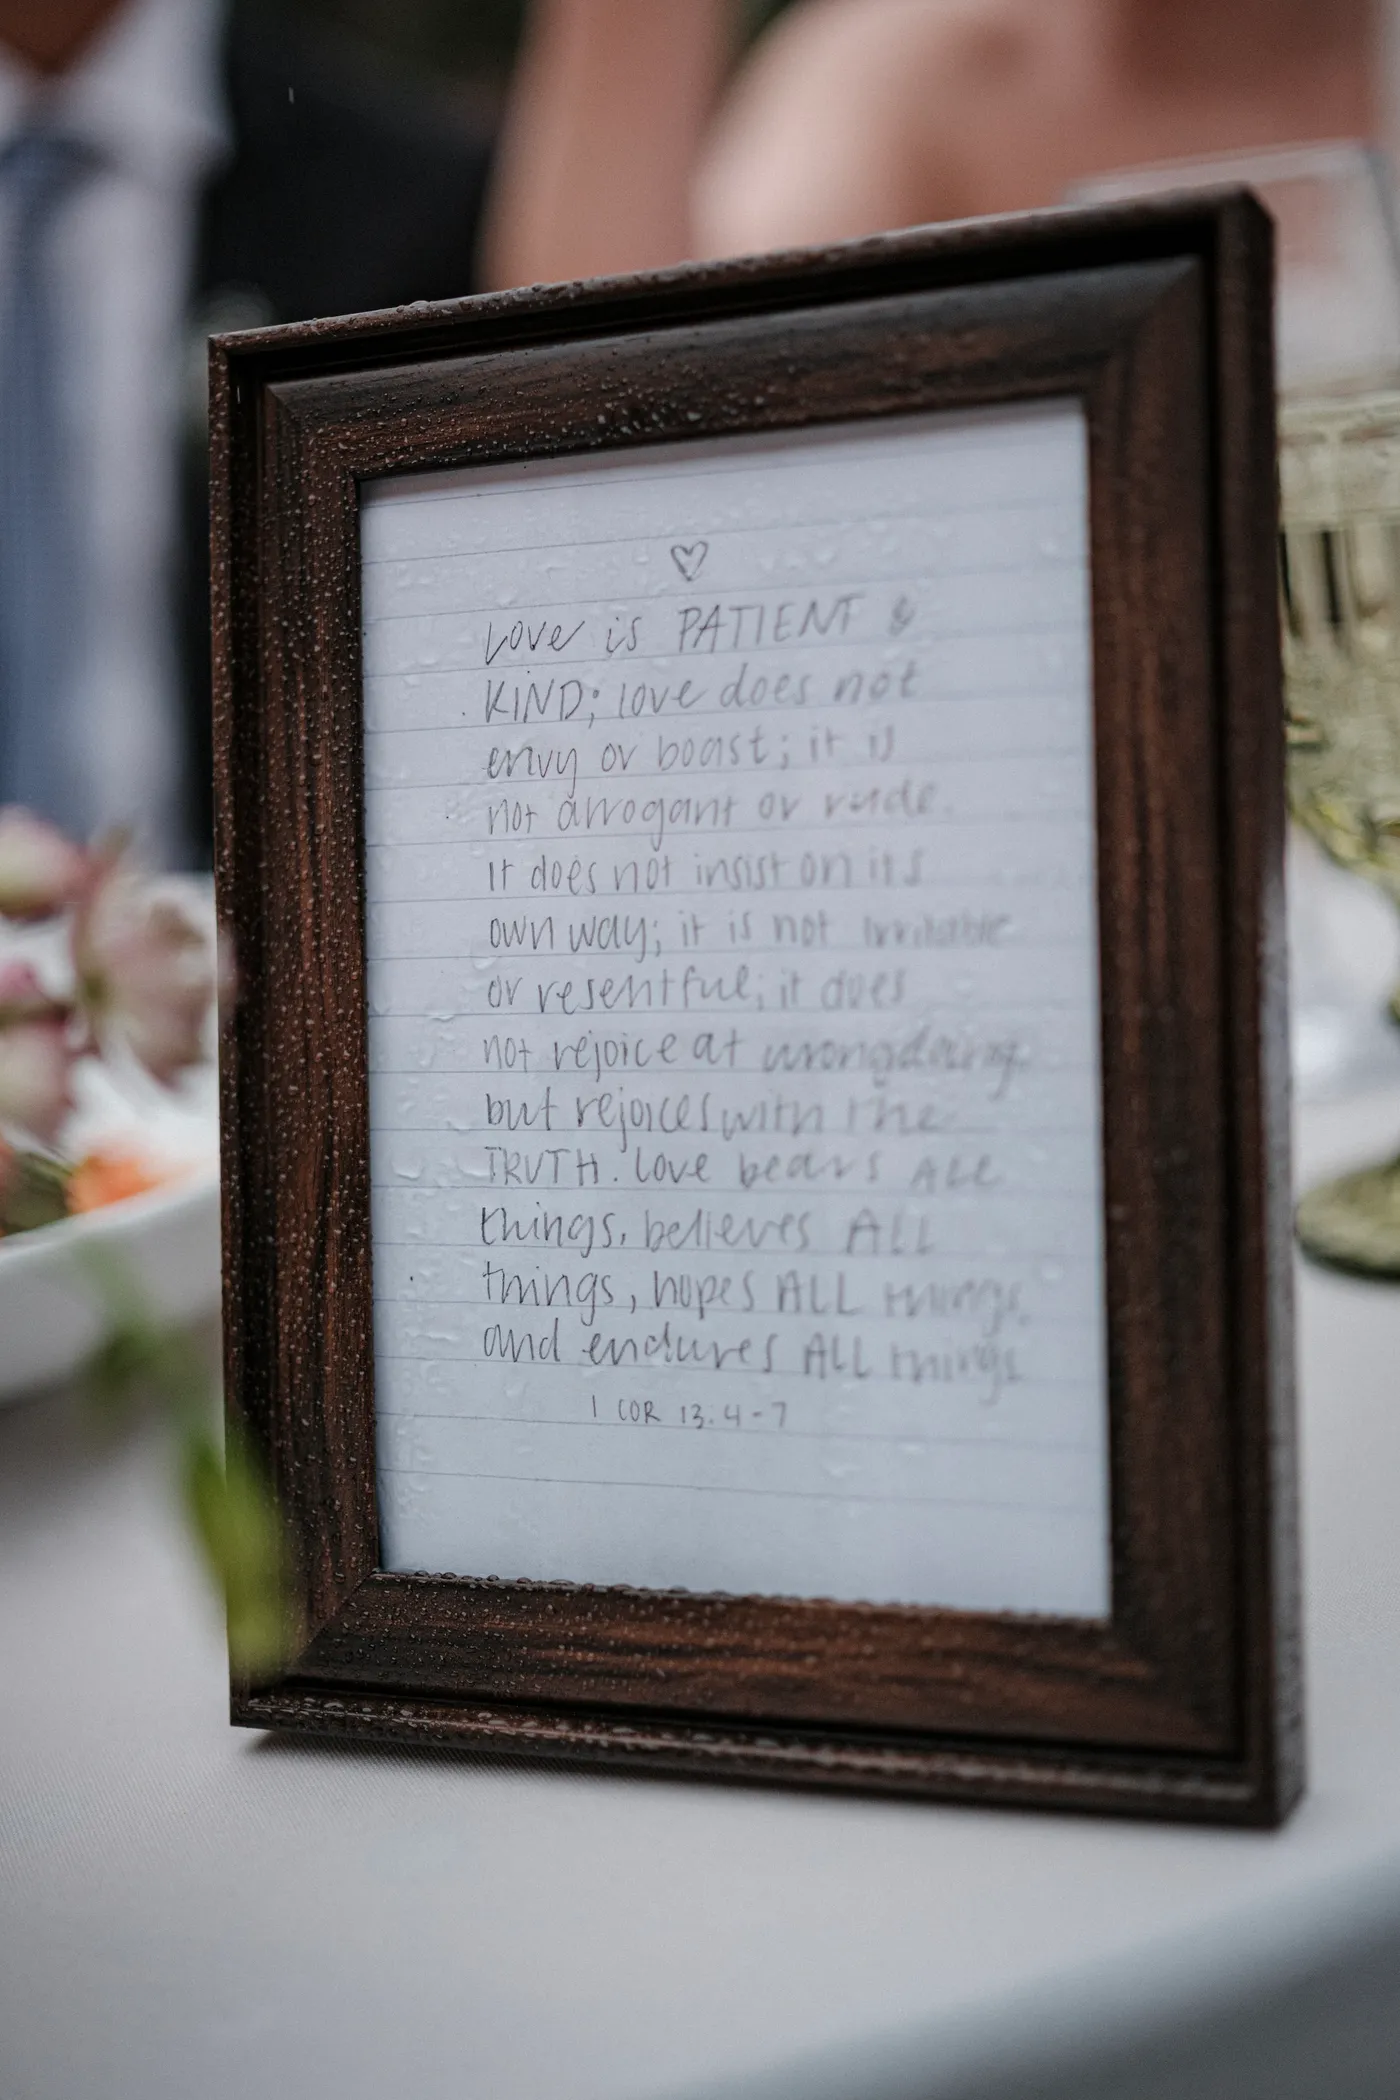 ♡
Love is PATIENT &
KIND; love does not
envy or boast; it is
not arrogant or rude
It does not insist on its
own way; it is not irritable
or resentful; it does
not rejoice at wrongdoing
but rejoices with the
TRUTH. Love bears ALL
things, believes ALL
things, hopes ALL things,
and endures ALL things
1 COR 13.4-7